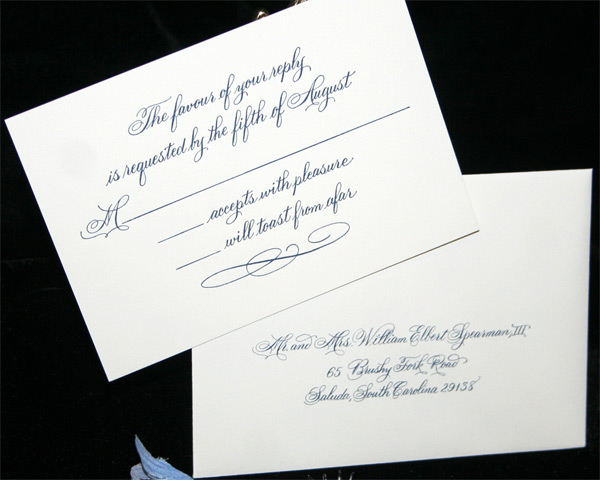 The favour of your reply
is requested by the fifth of August
M
accepts with pleasure
will toast from afar
Mr. and Mrs. William Elbert Spearman, III
65 Brushy Fork Road
Saluda, South Carolina 29138